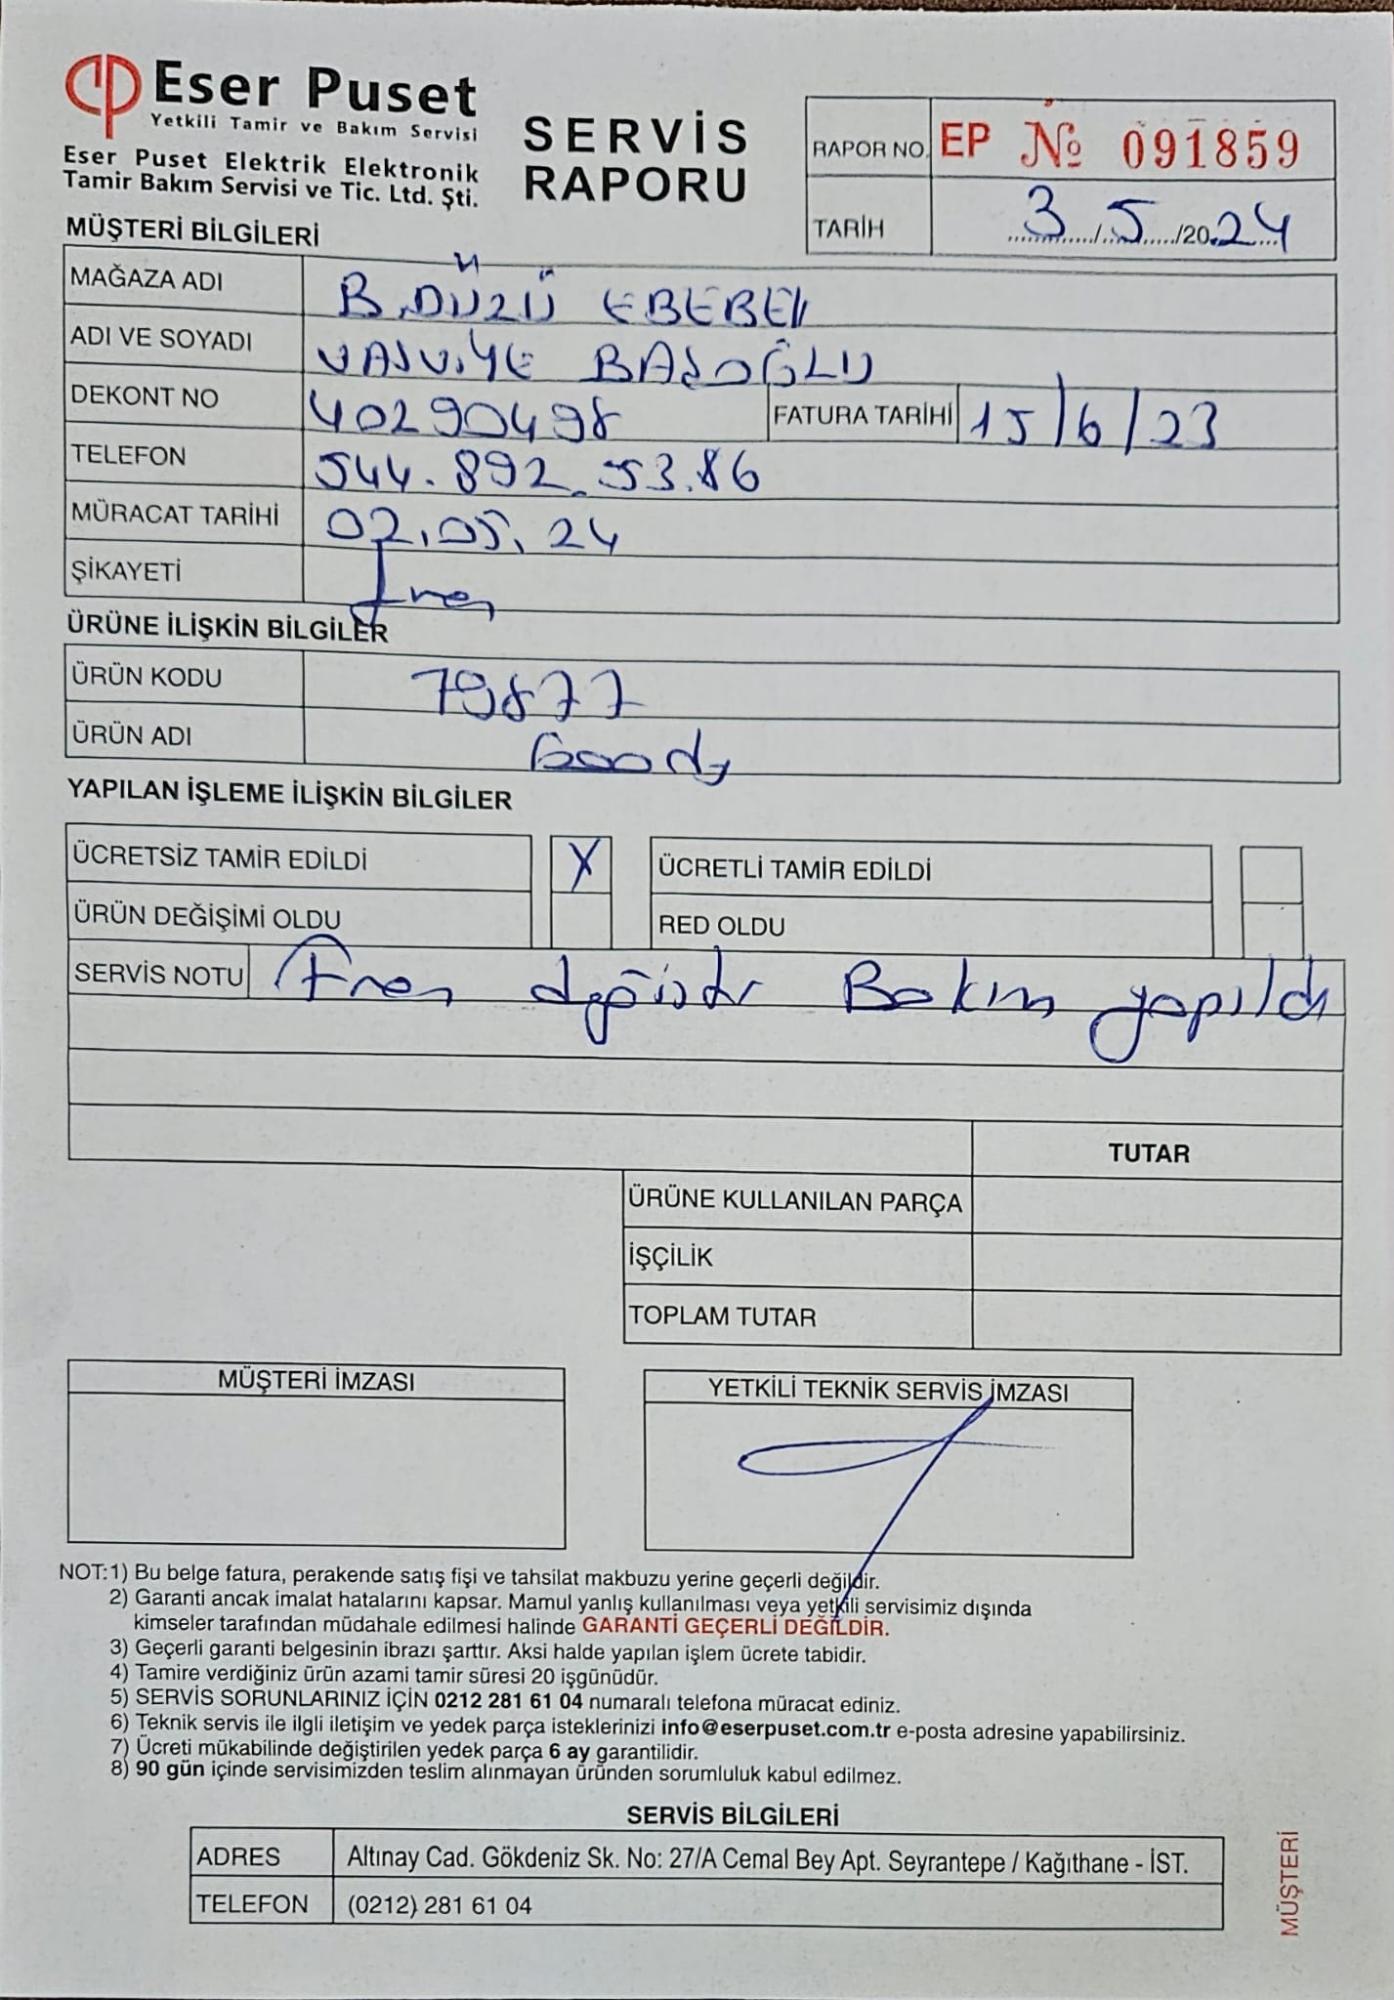 Eser Puset
Yetkili Tamir ve Bakım Servisi
Eser Puset Elektrik Elektronik
Tamir Bakım Servisi ve Tic. Ltd. Şti.
SERVİS
RAPORU
RAPOR NO. EP № 091859
TARİH 3/5/2024
MÜŞTERİ BİLGİLERİ
MAĞAZA ADI B.DÜZÜ EBEBEK
ADI VE SOYADI BAŞOĞLU
DEKONT NO 40290498 FATURA TARİHİ 15/6/23
TELEFON 544.892.53.86
MÜRACAT TARİHİ 02.05.24
ŞİKAYETİ Fren
ÜRÜNE İLİŞKİN BİLGİLER
ÜRÜN KODU 79877
ÜRÜN ADI Goody
YAPILAN İŞLEME İLİŞKİN BİLGİLER
ÜCRETSİZ TAMİR EDİLDİ X ÜCRETLİ TAMİR EDİLDİ
ÜRÜN DEĞİŞİMİ OLDU RED OLDU
SERVİS NOTU Fren değişdi Bakım yapıldı
TUTAR
ÜRÜNE KULLANILAN PARÇA
İŞÇİLİK
TOPLAM TUTAR
MÜŞTERİ İMZASI
YETKİLİ TEKNİK SERVİS İMZASI
NOT:1) Bu belge fatura, perakende satış fişi ve tahsilat makbuzu yerine geçerli değildir.
2) Garanti ancak imalat hatalarını kapsar. Mamul yanlış kullanılması veya yetkili servisimiz dışında
kimseler tarafından müdahale edilmesi halinde GARANTİ GEÇERLİ DEĞİLDİR.
3) Geçerli garanti belgesinin ibrazı şarttır. Aksi halde yapılan işlem ücrete tabidir.
4) Tamire verdiğiniz ürün azami tamir süresi 20 işgünüdür.
5) SERVİS SORUNLARINIZ İÇİN 0212 281 61 04 numaralı telefona müracat ediniz.
6) Teknik servis ile ilgli iletişim ve yedek parça isteklerinizi info@eserpuset.com.tr e-posta adresine yapabilirsiniz.
7) Ücreti mükabilinde değiştirilen yedek parça 6 ay garantilidir.
8) 90 gün içinde servisimizden teslim alınmayan üründen sorumluluk kabul edilmez.
SERVİS BİLGİLERİ
ADRES Altınay Cad. Gökdeniz Sk. No: 27/A Cemal Bey Apt. Seyrantepe / Kağıthane - İST.
TELEFON (0212) 281 61 04
MÜŞTERİ